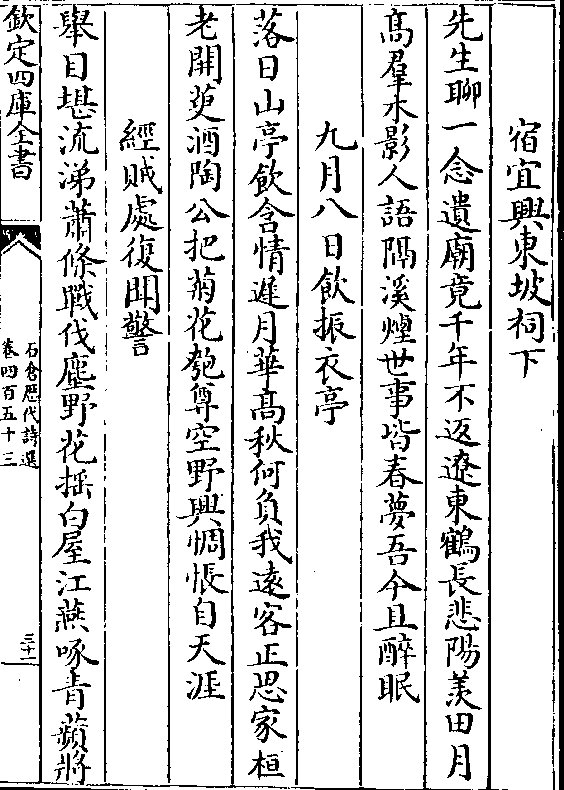 宿宜興東坡祠下
先生聊一念遺廟竟千年不返遼東鶴長悲陽羨田月
高羣木影人語隔溪煙世事皆春夢吾今且醉眠
九月八日飲振衣亭
落日山亭飲含情遲月華高秋何負我遠客正思家桓
老開萸酒陶公把菊花匏尊空野興惆悵自天涯
經賊處復聞警
舉目堪流涕蕭條戰伐塵野花揺白屋江燕啄青蘋將
欽定四庫全書
石倉歴代詩選
卷四百五十三
三十一